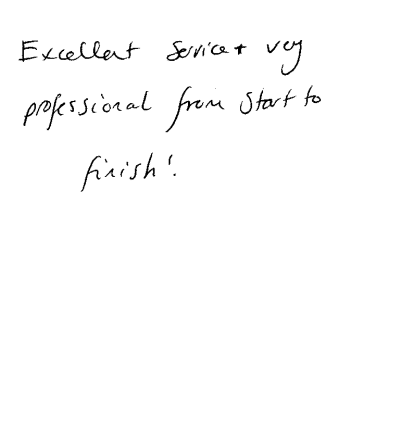 Excellent Service + very
professional from start to
finish!